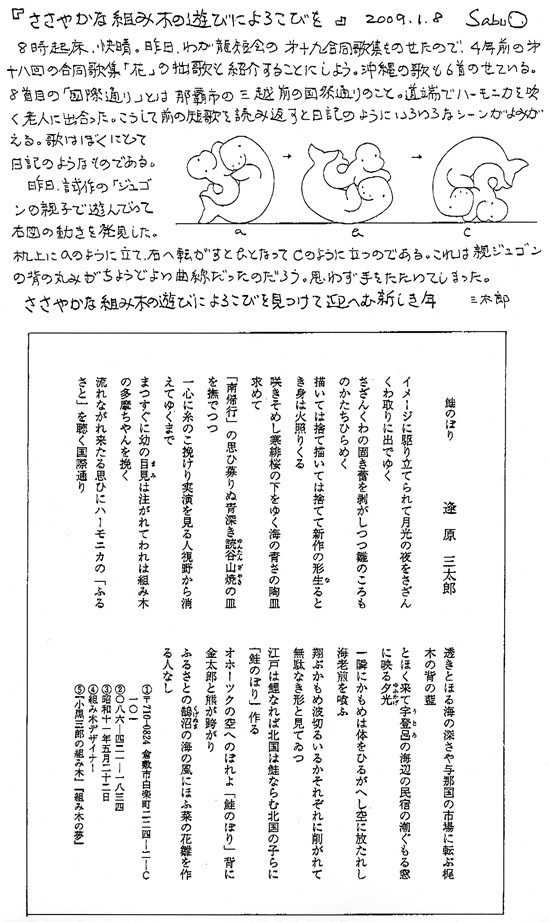 『ささやかな組み木の遊びによろこびを』 2009.1.8 Sabu
8時起床、快晴。昨日、わが龍短会の第十九合同歌集をのせたので、4年前の第
十八回の合同歌集「花」の拙歌を紹介することにしよう。沖縄の歌も6首のせている。
8首目の「国際通り」とは那覇市の三越前の国際通りのこと。道端でハーモニカを吹
く老人に出合った。こうして前の短歌を読み返すと日記のようにいろいろなシーンがよみが
える。歌はぼくにとって
日記のようなものである。
昨日、試作の「ジュゴ
ンの親子で遊んでいて
右図の動きを発見した。
a
b
c
机上にaのように立て、右へ転がすとbとなってcのように立つのである。これは親ジュゴン
の背の丸みがちょうどよい曲線だったのだろう。思わず手をたたいてしまった。
ささやかな組み木の遊びによろこびを見つけて迎へむ新しき年 三太郎
鮭のぼり 逢原三太郎
イメージに駆り立てられて月光の夜をさざん
くわ取りに出でゆく
さざんくわの固き蕾を剥がしつつ雛のころも
のかたちひらめく
描いては捨て描いては捨てて新作の形生ると
き身は火照りくる
咲きそめし寒緋桜の下をゆく海の青さの陶皿
求めて
「南帰行」の思ひ募りぬ青深き読谷山焼の皿
を撫でつつ
一心に糸のこ挽けり実演を見る人視野から消
えてゆくまで
まつすぐに幼の目見は注がれてわれは組み木
の多摩ちやんを挽く
流れながれ来たる思ひにハーモニカの「ふる
さと」を聴く国際通り
透きとほる海の深さや与那国の市場に転ぶ梶
木の背の藍
とほく来て宇登呂の海辺の民宿の潮ぐもる窓
に映る夕光
一瞬にかもめは体をひるがへし空に放たれし
海老煎を喰ふ
翔ぶかもめ波切るいるかそれぞれに削がれて
無駄なき形と見てゐつ
江戸は鯉なれば北国は鮭ならむ北国の子らに
「鮭のぼり」作る
オホーツクの空へのぼれよ「鮭のぼり」背に
金太郎と熊が跨がり
ふるさとの鵠沼の海の風にほふ菜の花雛を作
る人なし
①〒710-0824 倉敷市白楽町二二四―二―C
一〇一
②〇八六―四二一―一八三四
③昭和十一年五月二十二日
④組み木デザイナー
⑤『小黒三郎の組み木』『組み木の夢』